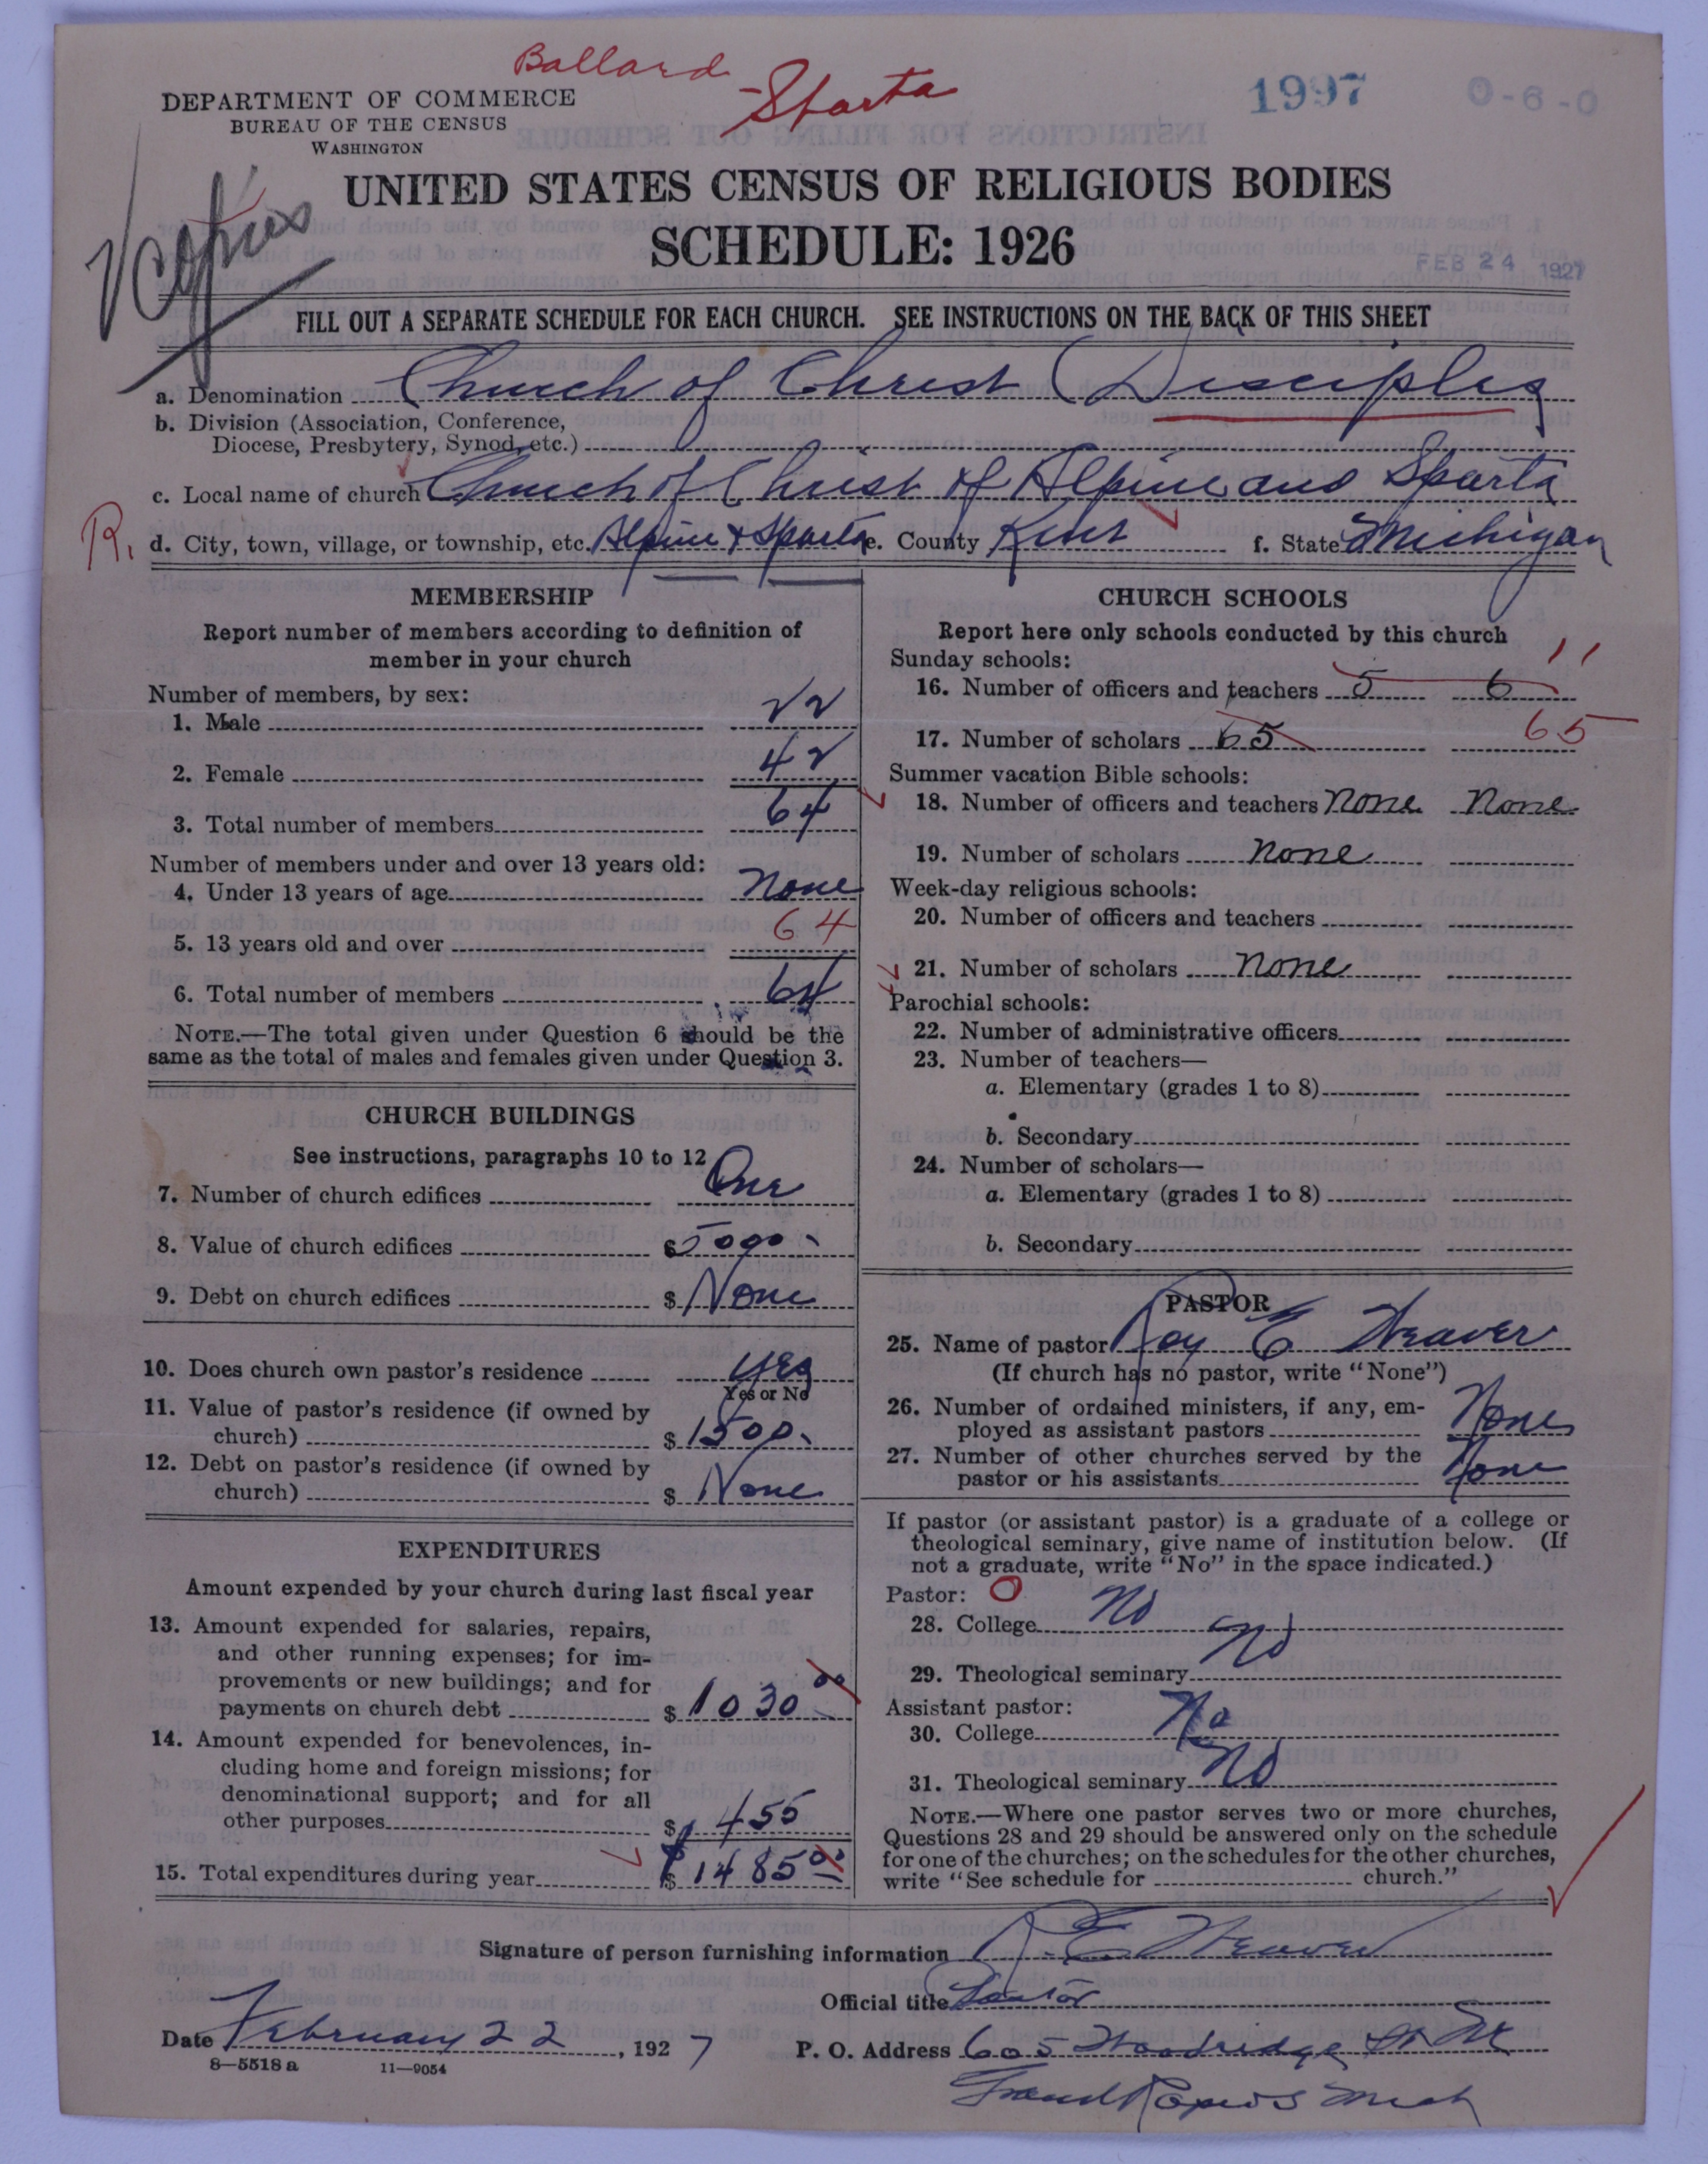 Ballard
Sparta
1997
0-6-0
DEPARTMENT OF COMMERCE
BUREAU OF THE CENSUS
WASHINGTON
UNITED STATES CENSUS OF RELIGIOUS BODIES
SCHEDULE: 1926
FEB 24 1927
FILL OUT A SEPARATE SCHEDULE FOR EACH CHURCH. SEE INSTRUCTIONS ON THE BACK OF THIS SHEET
a. Denomination Church of Christ (Disciples
b. Division (Association, Conference,
Diocese, Presbytery, Synod, etc.)
c. Local name of church Church of Christ of Alpine and Sparta
R. d. City, town, village, or township, etc. Alpine & Sparta e. County Kent f. State Michigan
MEMBERSHIP
Report number of members according to definition of
member in your church
Number of members, by sex:
1. Male 22
2. Female 42
3. Total number of members 64
Number of members under and over 13 years old:
4. Under 13 years of age None
5. 13 years old and over 64
6. Total number of members 64
NOTE.—The total given under Question 6 should be the
same as the total of males and females given under Question 3.
CHURCH BUILDINGS
See instructions, paragraphs 10 to 12
7. Number of church edifices One
8. Value of church edifices $5000
9. Debt on church edifices $ None
10. Does church own pastor's residence yes
Yes or No
11. Value of pastor's residence (if owned by
church) $ 1500
12. Debt on pastor's residence (if owned by
church) $ None
EXPENDITURES
Amount expended by your church during last fiscal year
13. Amount expended for salaries, repairs,
and other running expenses; for im-
provements or new buildings; and for
payments on church debt $ 1030 00
14. Amount expended for benevolences, in-
cluding home and foreign missions; for
denominational support; and for all
other purposes $ 455
15. Total expenditures during year $ 1485 00
CHURCH SCHOOLS
Report here only schools conducted by this church
Sunday schools: 11
16. Number of officers and teachers 5 6
17. Number of scholars 65 65
Summer vacation Bible schools:
18. Number of officers and teachers None None
19. Number of scholars None
Week-day religious schools:
20. Number of officers and teachers
21. Number of scholars None
Parochial schools:
22. Number of administrative officers
23. Number of teachers—
a. Elementary (grades 1 to 8)
b. Secondary
24. Number of scholars—
a. Elementary (grades 1 to 8)
b. Secondary
PASTOR
25. Name of pastor Roy E Weaver
(If church has no pastor, write "None")
26. Number of ordained ministers, if any, em-
ployed as assistant pastors None
27. Number of other churches served by the
pastor or his assistants None
If pastor (or assistant pastor) is a graduate of a college or
theological seminary, give name of institution below. (If
not a graduate, write "No" in the space indicated.)
Pastor: O
28. College No
29. Theological seminary No
Assistant pastor:
30. College No
31. Theological seminary No
NOTE.—Where one pastor serves two or more churches,
Questions 28 and 29 should be answered only on the schedule
for one of the churches; on the schedules for the other churches,
write "See schedule for church."
Signature of person furnishing information R. E. Weaver
Official title Pastor
Date February 22, 1927 P. O. Address 605 Woodridge St
8—5518 a 11—9054
Grand Rapids Mich